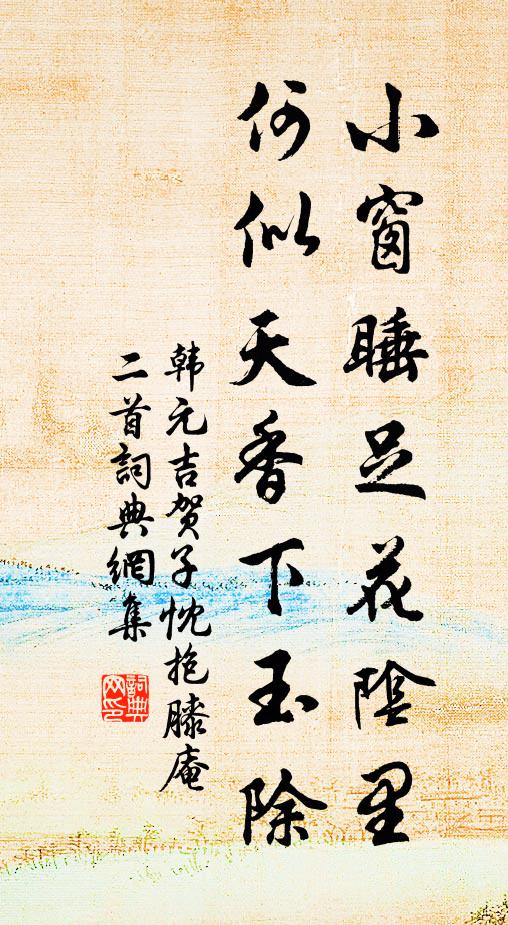 小窗睡足花陰里
何似天香下玉除
韩元吉贺子忱抱膝庵
二首詞典網集
詞典
网印